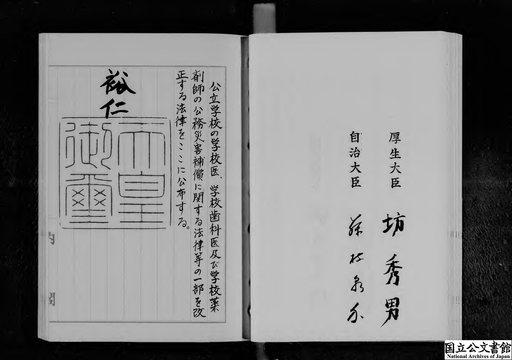 公立学校の学校医、学校歯科医及び学校薬
剤師の公務災害補償に関する法律等の一部を改
正する法律をここに公布する。
裕仁
天皇
御璽
内閣
厚生大臣 坊秀男
自治大臣
国立公文書館
National Archives of Japan